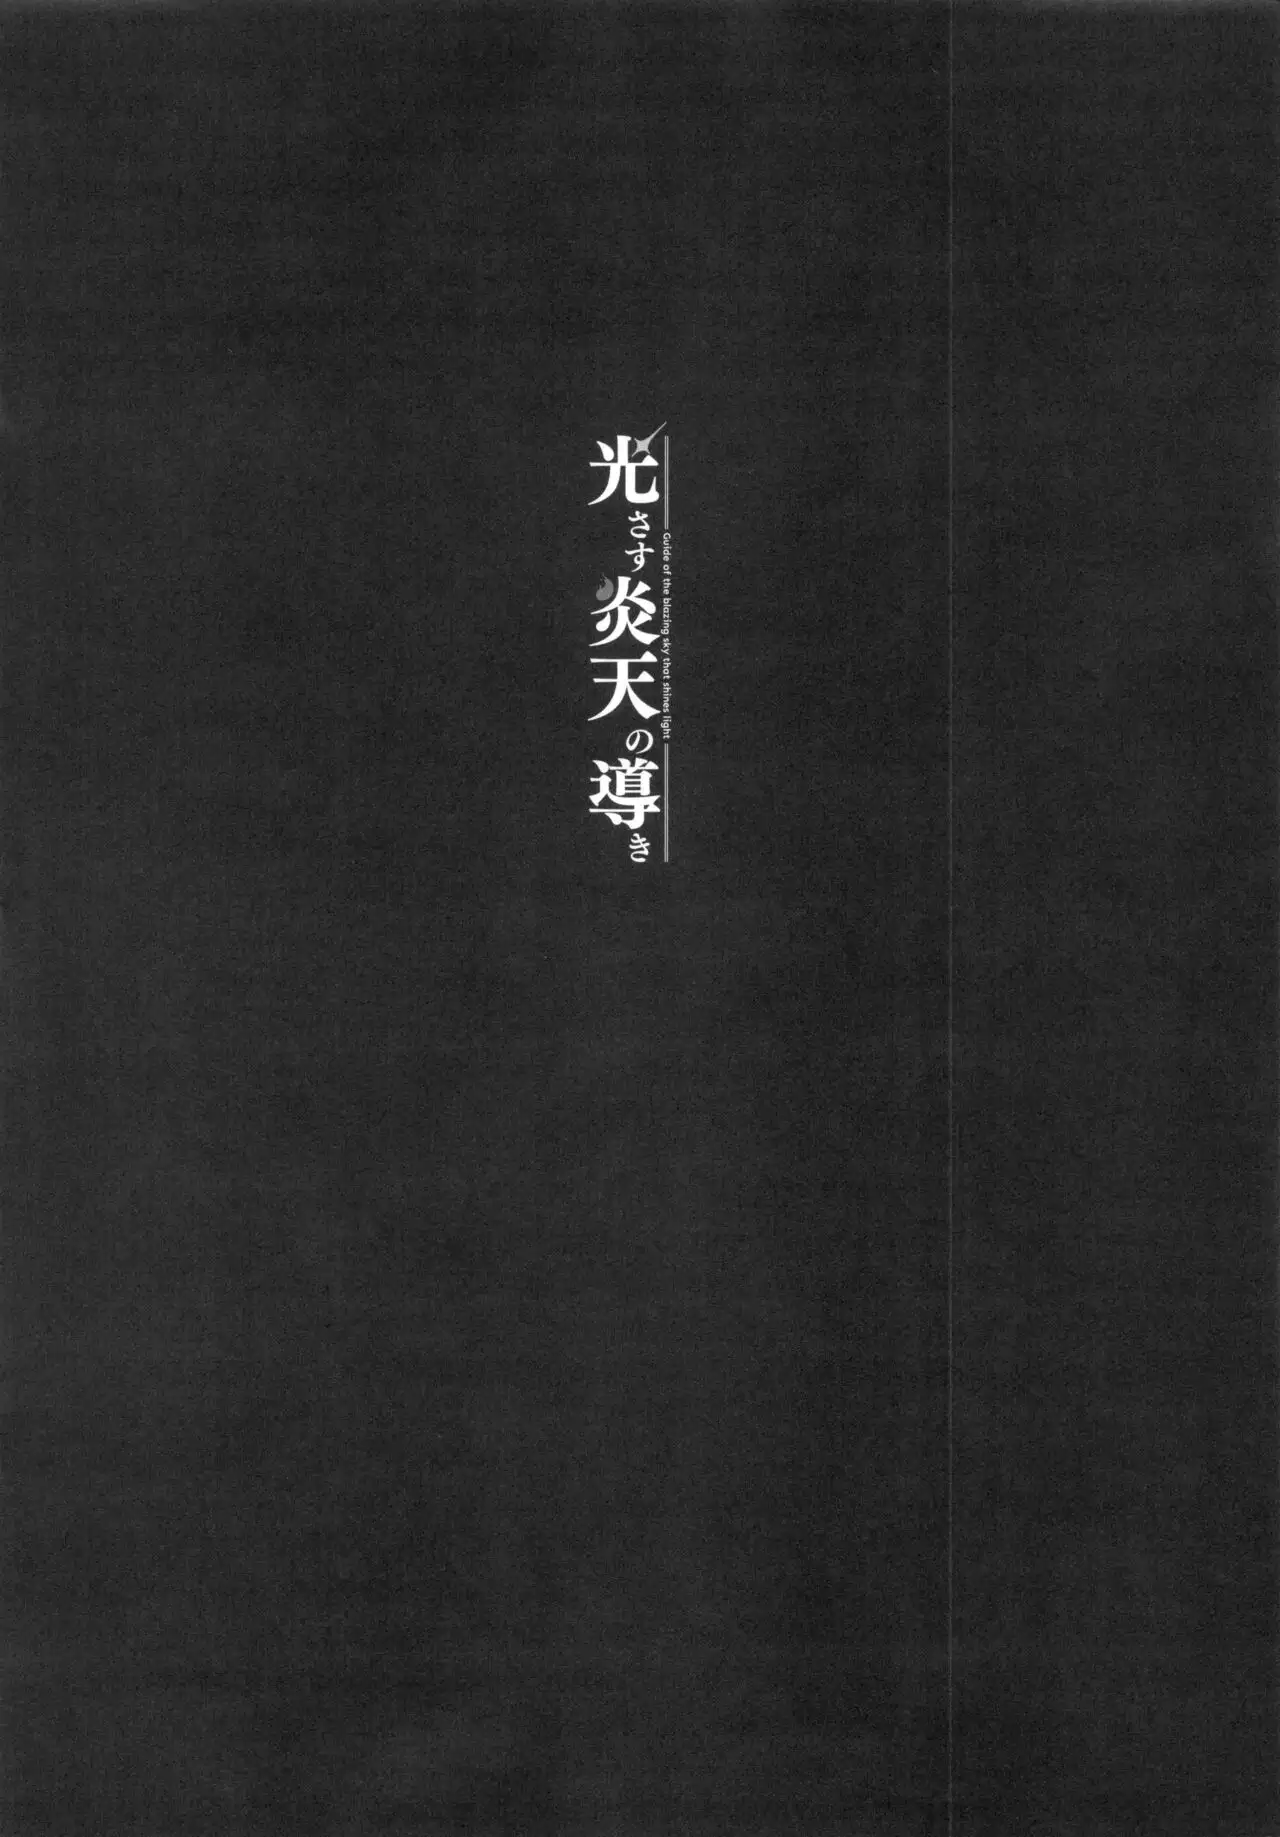 光さす炎天の導き
Guide of the blazing sky that shines light